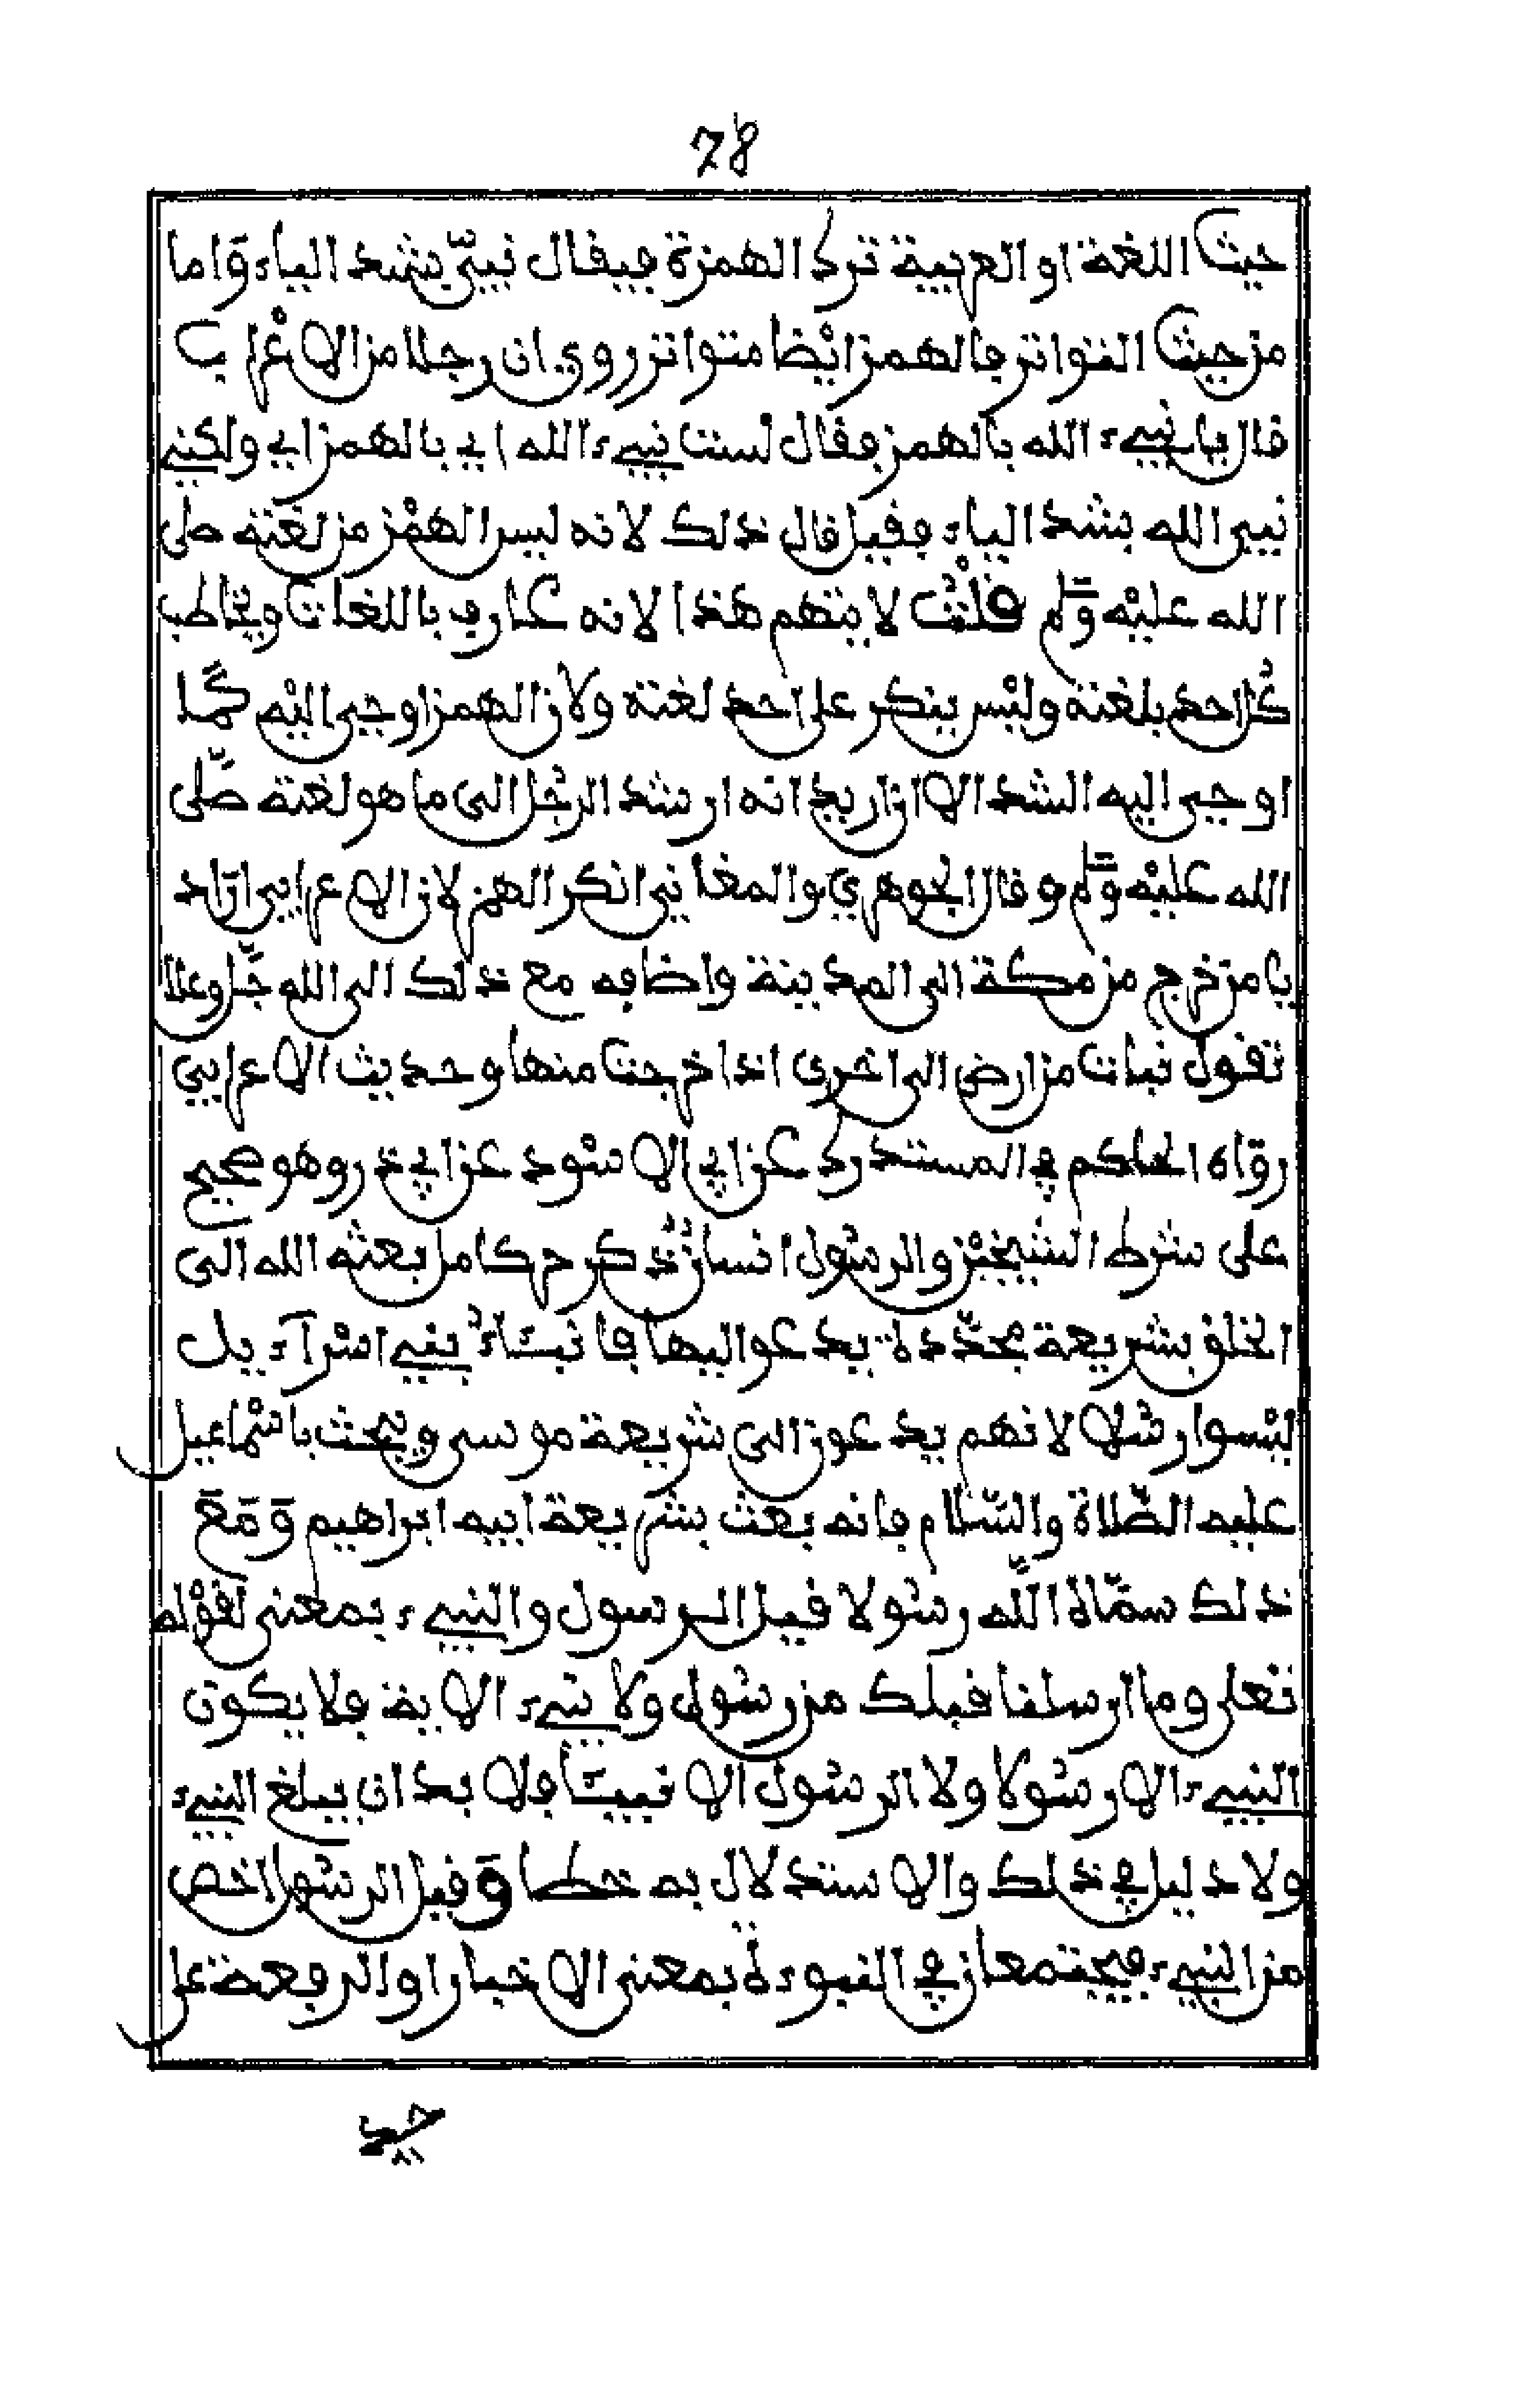 78
حيث اللغة او العربية ترد الهمزة فيقال نبيّ بشد الياء وَاما
من حيث التواتر فالهمز ايْضا متواتر روي ان رجلا من الاعْراب
قال يا نبيء الله بالهمز فقال لست نبيء الله اي بالهمز اي ولكني
نبي الله بشد الياء فقيل قال ذلك لانه ليس الهمْز من لغته صلى
الله عليْه وسَلم قلْت لا يتهم هذا لانه عارف باللغات ويخاطب
كُل احد بلغته وليْس ينكر على احد لغته ولان الهمز اوحي اليْه كَما
اوحي اليه الشد الا ان اريد انه ارشد الرجُل الى ما هو لغته صَلّى
الله عليْه وسَلم وقال الجوهري والمغاني انكر الهمز لان الاعرابي اراد
يا من خرج من مكة الى المدينة واضافه مع ذلك الى الله جَلّ وعلا
تقول نبات من ارض الى اخرى اذا خرجت منها وحديث الاعرابي
روَاه الحاكم في المستدرك عن ابي الاسْود عن ابي ذر وهو صحيح
على شرْط الشيخيْن والرسُول انسان ذُكُر حر كامل بعثه الله الى
الخلق بشريعة مجَدّدة يدعو اليها فانبئاءُ بني اسْرآءيل
ليْسوا رسُلا لانهم يدعون الى شريعة موسى ويبحث باسْماعيل
عليه الصّلاة والسّلام فانه بعث بشريعة ابيه ابراهيم وَمَعَ
ذلك سمّاه اللّه رسُولا قيل الرسول والنبيء بمعنى لقوْله
تعلى وما ارسلنا قبلك من رسُول ولا نبيء الاية فلا يكون
النبيء الا رسُولا ولا الرسُول الا نبيئا فلا بد ان يبلغ النبيء
ولا دليل في ذلك والاستدلال به خطا وَقيل الرسُول اخص
من النبيء فيجتمعان في النبوءة بمعنى الاخبار او الرفعة على